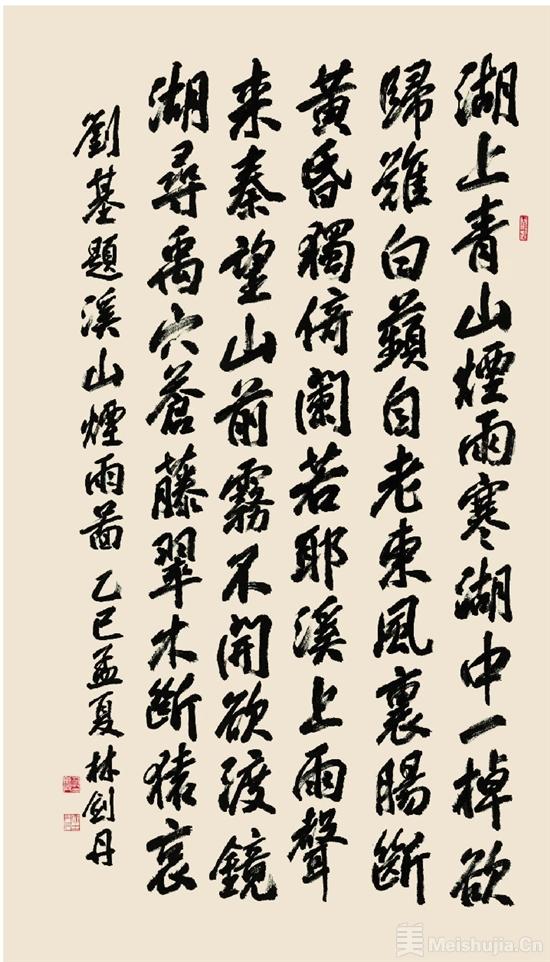 湖上青山煙雨寒湖中一棹欲
歸難白蘋自老東風裏腸斷
黃昏獨倚闌若耶溪上雨聲
来秦望山前霧不開欲渡鏡
湖尋禹穴蒼藤翠木斷猿哀
劉基題溪山煙雨啚乙巳孟夏林劍丹
美 Meishujia.Cn